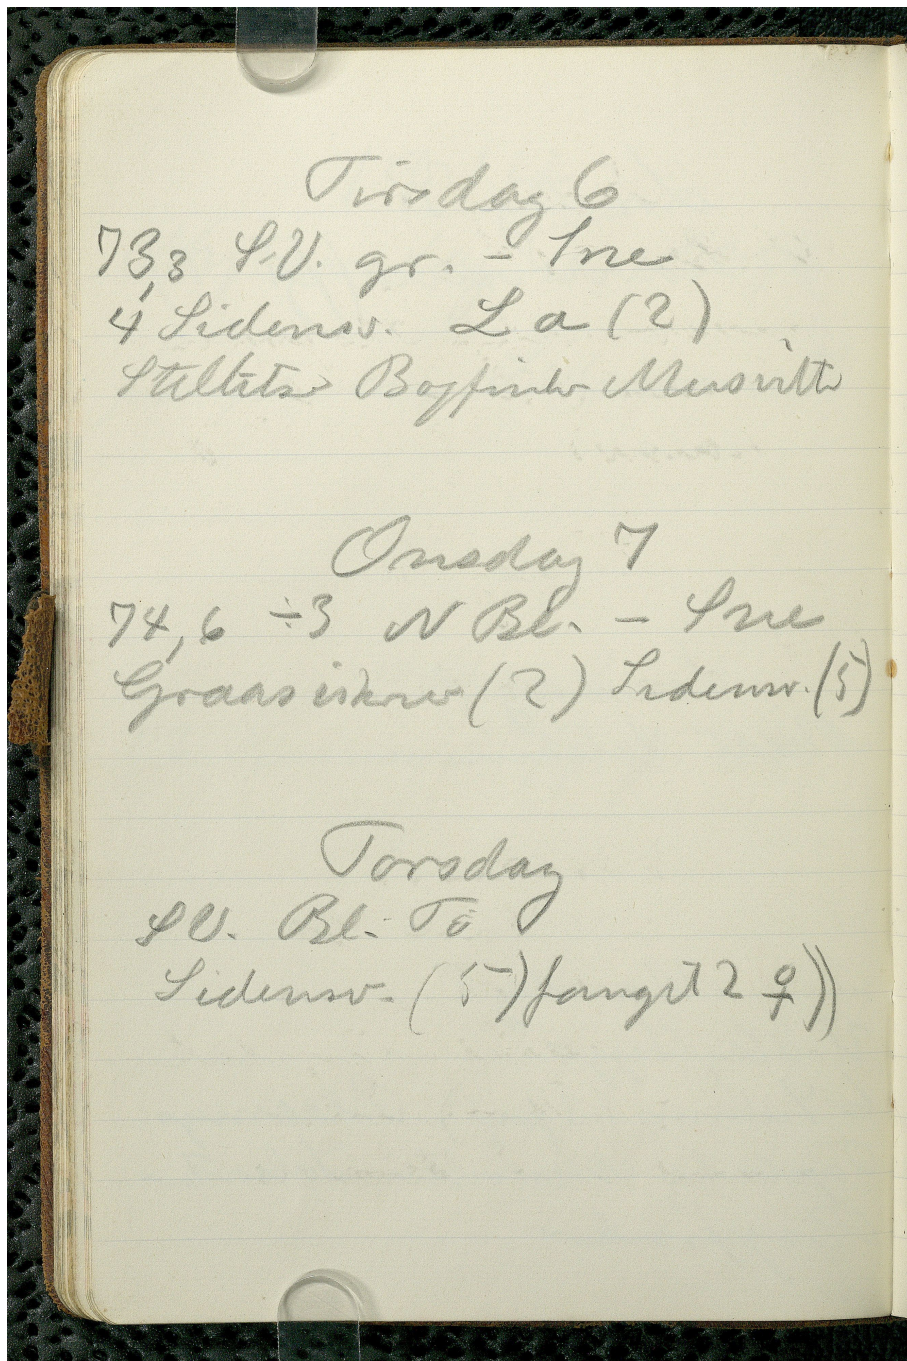 Tirsdag 6
73,3 S.V. gr. - Sne
4 Sidensv. L a (2)
Stillits Bogfinke Musvitte
Onsdag 7
74,6 ÷3 N Bl. - Sne
Graasiskene (2) Sidensv. (5)
Torsdag
SV. Bl. Tö
Sidensv. (5) fanget 2 ♀))